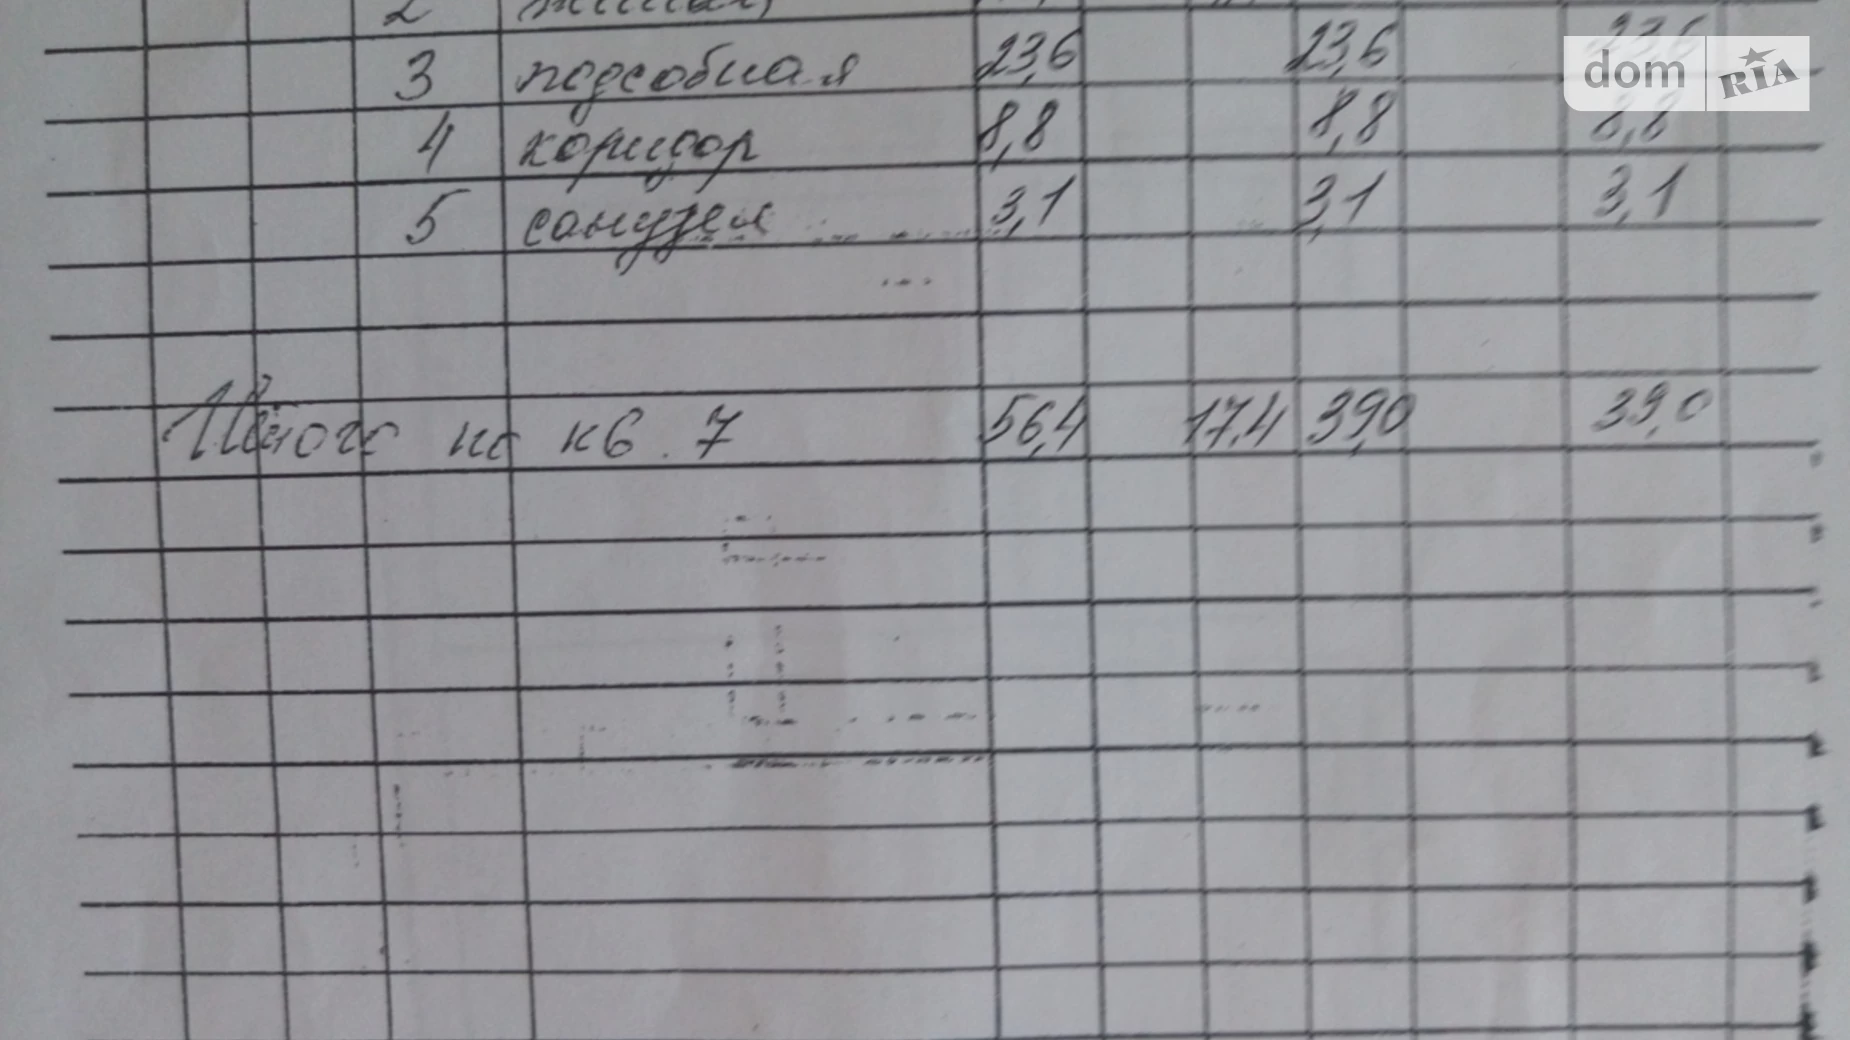 2 жилая
3 подсобная 23,6 23,6 23,6
4 коридор 8,8 8,8 8,8
5 санузел 3,1 3,1 3,1
Итого по кв. 7 56,4 17,4 39,0 39,0
dom RIA